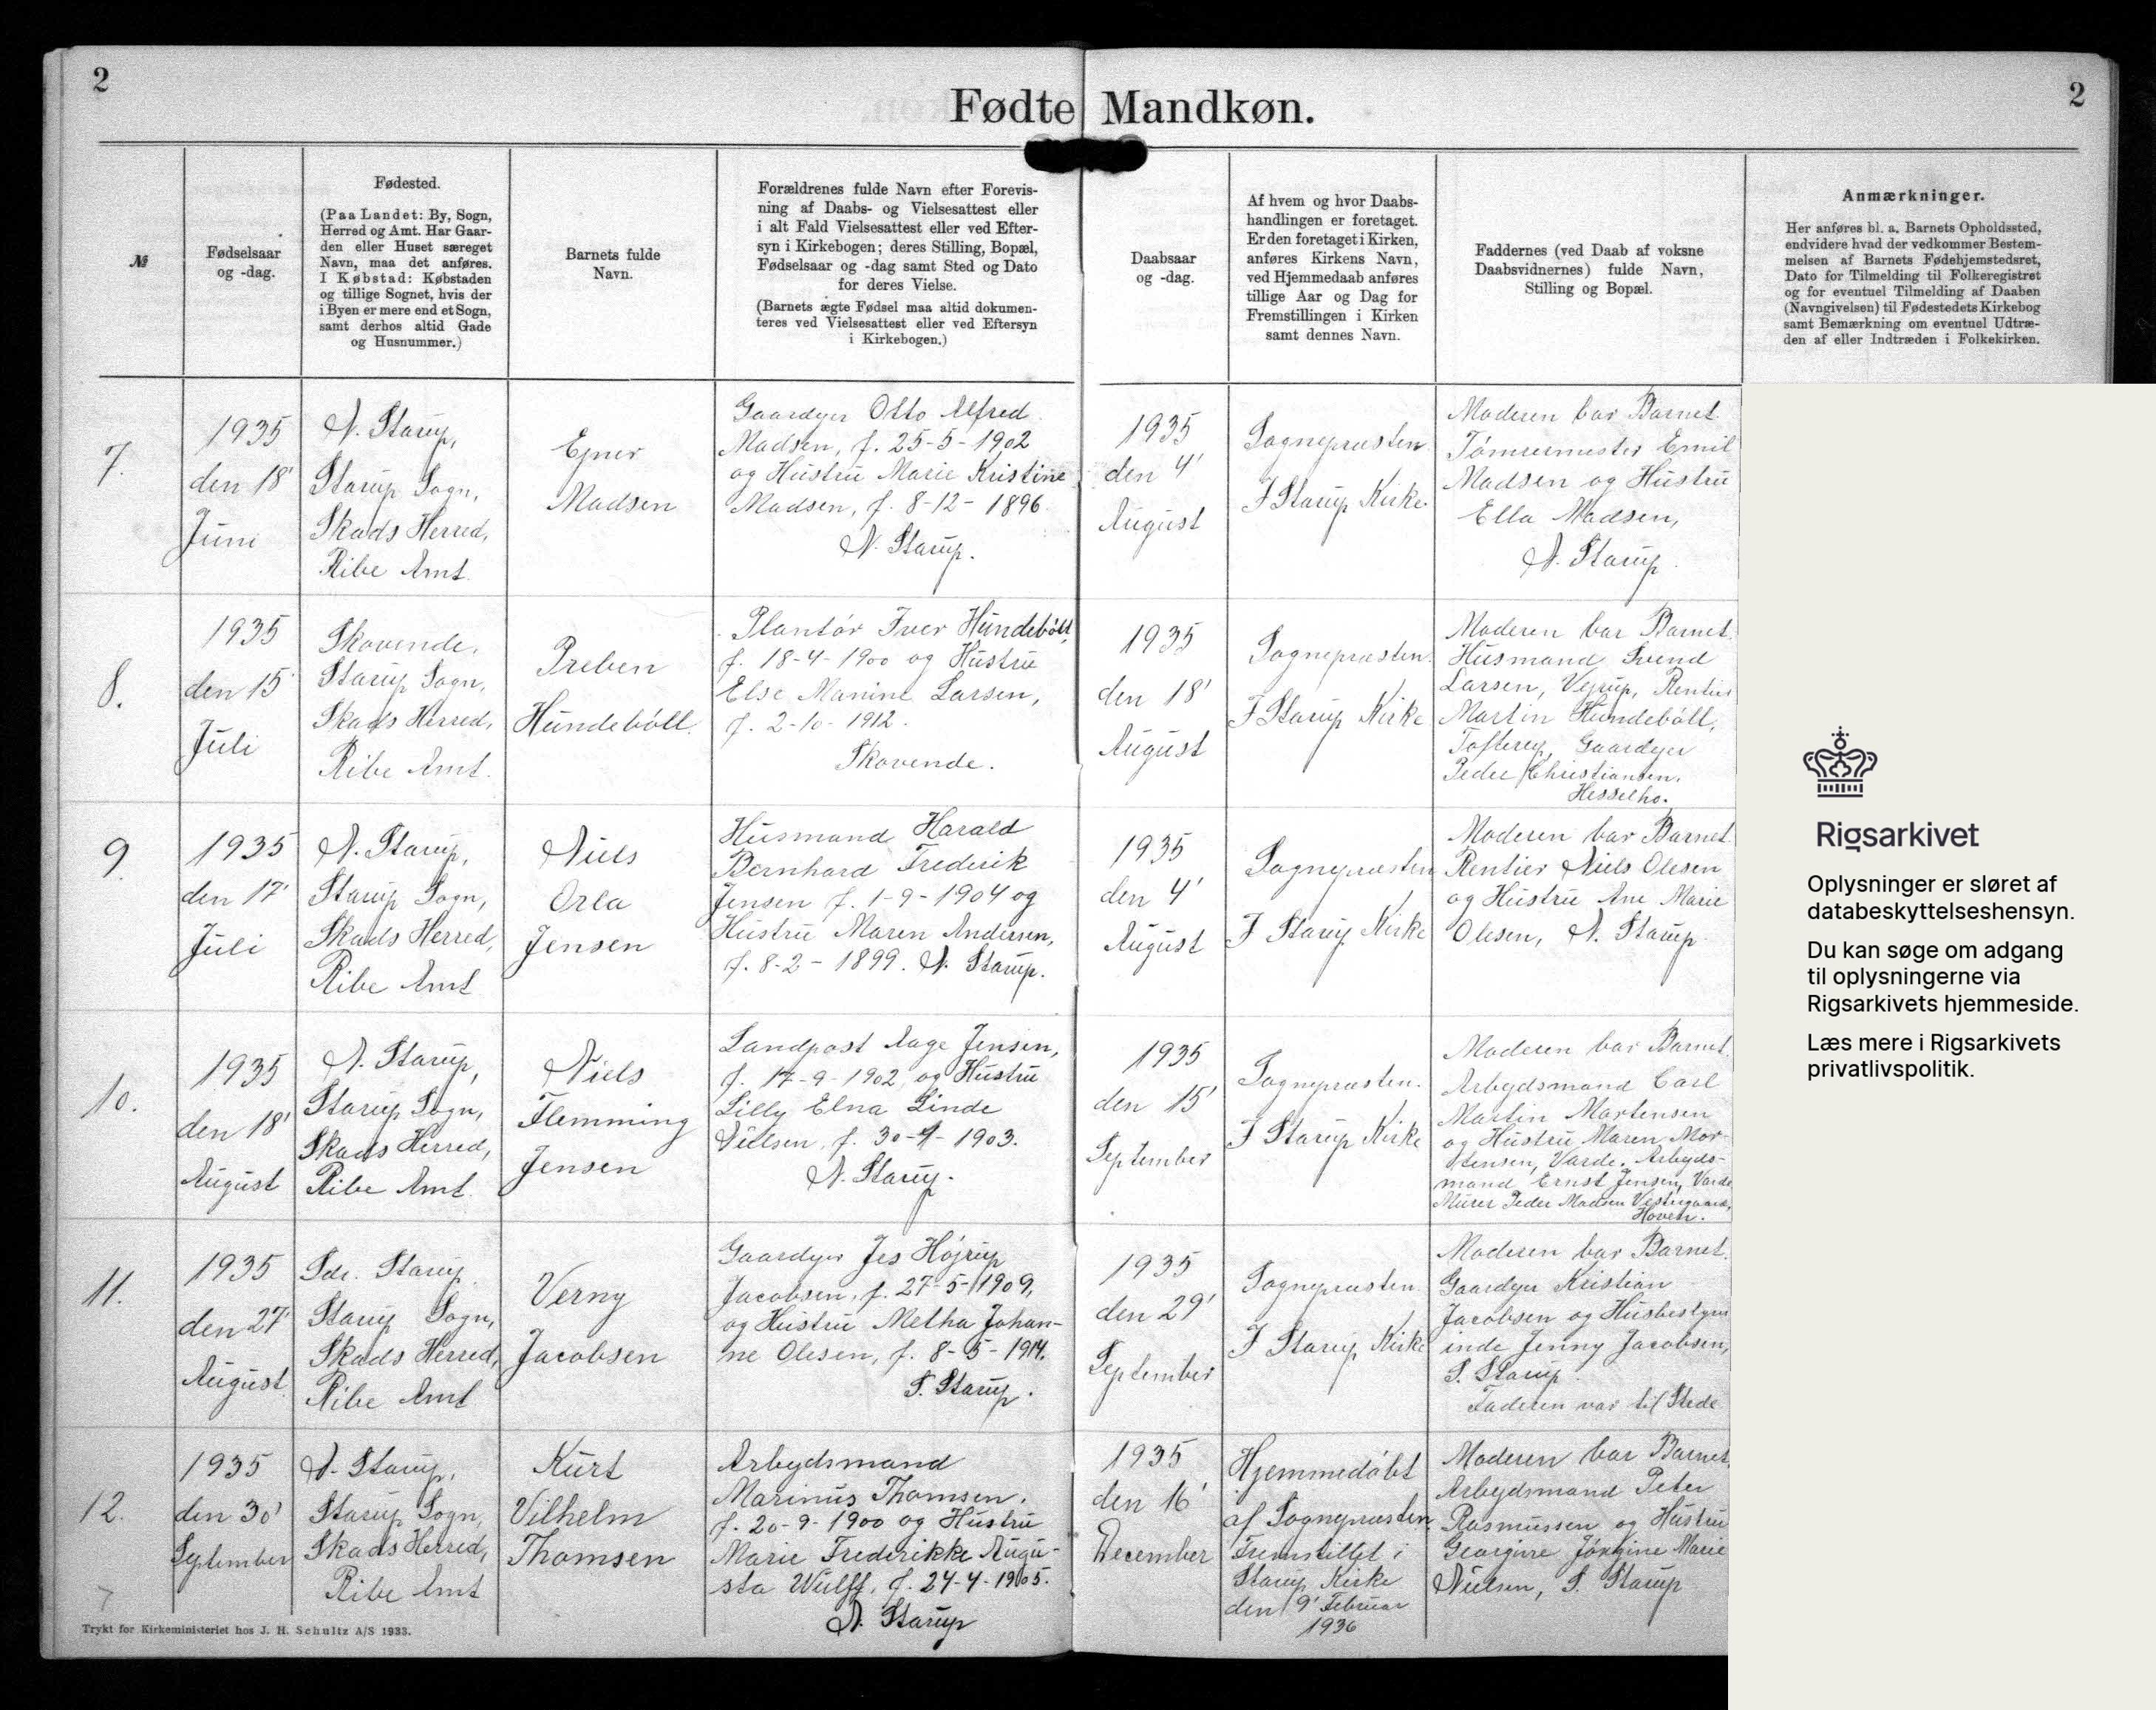 2
2
Fødte Mandkøn.
№
Fødselsaar
og -dag.
Fødested.
(Paa Landet: By, Sogn,
Herred og Amt. Har Gaar-
den eller Huset særeget
Navn, maa det anføres.
I Købstad: Købstaden
og tillige Sognet, hvis der
i Byen er mere end et Sogn,
samt derhos altid Gade
og Husnummer.)
Barnets fulde
Navn.
Forældrenes fulde Navn efter Forevis-
ning af Daabs- og Vielsesattest eller
i alt Fald Vielsesattest eller ved Efter-
syn i Kirkebogen; deres Stilling, Bopæl,
Fødselsaar og -dag samt Sted og Dato
for deres Vielse.
(Barnets ægte Fødsel maa altid dokumen-
teres ved Vielsesattest eller ved Eftersyn
i Kirkebogen.)
Daabsaar
og -dag.
Af hvem og hvor Daabs-
handlingen er foretaget.
Er den foretaget i Kirken,
anføres Kirkens Navn,
ved Hjemmedaab anføres
tillige Aar og Dag for
Fremstillingen i Kirken
samt dennes Navn.
Faddernes (ved Daab af voksne
Daabsvidnernes) fulde Navn,
Stilling og Bopæl.
Anmærkninger.
Her anføres bl. a. Barnets Opholdssted,
endvidere hvad der vedkommer Bestem-
melsen af Barnets Fødehjemstedsret,
Dato for Tilmelding til Folkeregistret
og for eventuel Tilmelding af Daaben
(Navngivelsen) til Fødestedets Kirkebog
samt Bemærkning om eventuel Udtræ-
den af eller Indtræden i Folkekirken.
7.
1935
den 18'
Juni
N. Starup,
Starup Sogn,
Skads Herred,
Ribe Amt.
Ejner
Madsen
Gaardejer Otto Alfred
Madsen, f. 25-5-1902
og Hustru Marie Kristine
Madsen, f. 8-12-1896.
N. Starup.
1935
den 4'
August
Sognepræsten
I Starup Kirke.
Moderen bar Barnet.
Tømrermester Emil
Madsen og Hustru
Ella Madsen,
N. Starup.
8.
1935
den 15'
Juli
Skovende,
Starup Sogn,
Skads Herred,
Ribe Amt.
Preben
Hundebøll.
Plantør Iver Hundebøll,
f. 18-4-1900 og Hustru
Else Manine Larsen,
f. 2-10-1912.
Skovende.
1935
den 18'
August
Sognepræsten.
I Starup Kirke
Moderen bar Barnet.
Husmand Svend
Larsen, Vejrup, Rentier
Martin Hundebøll,
Tofterup, Gaardejer
Peder Christiansen,
Hesselho.
9.
1935
den 17'
Juli
N. Starup,
Starup Sogn,
Skads Herred,
Ribe Amt
Niels
Orla
Jensen
Husmand Harald
Bernhard Frederik
Jensen f. 1-9-1904 og
Hustru Maren Andersen,
f. 8-2-1899. N. Starup.
1935
den 4'
August
Sognepræsten
I Starup Kirke
Moderen bar Barnet.
Rentier Niels Olesen
og Hustru Ane Marie
Olesen, N. Starup
10.
1935
den 18'
August
N. Starup,
Starup Sogn,
Skads Herred,
Ribe Amt.
Niels
Flemming
Jensen
Landpost Aage Jensen,
f. 17-9-1902, og Hustru
Lilly Elna Linde
Nielsen, f. 30-9-1903.
N. Starup.
1935
den 15'
September
Sognepræsten.
I Starup Kirke
Moderen bar Barnet.
Arbejdsmand Carl
Martin Mortensen
og Hustru Maren Mor-
tensen, Varde. Arbejds-
mand Ernst Jensen, Varde
Murer Peder Madsen Vestergaard,
Hoven.
11.
1935
den 27'
August.
Sdr. Starup
Starup Sogn,
Skads Herred,
Ribe Amt
Verny
Jacobsen
Gaardejer Jes Højrup
Jacobsen, f. 27-5-1909,
og Hustru Metha Johan-
ne Olesen, f. 8-5-1914.
S. Starup.
1935
den 29'
September
Sognepræsten.
I Starup Kirke
Moderen bar Barnet.
Gaardejer Kristian
Jacobsen og Husbestyrer
inde Jenny Jacobsen,
S. Starup.
Faderen var til Stede
12.
1935
den 30'
September
N. Starup,
Starup Sogn,
Skads Herred,
Ribe Amt
Kurt
Vilhelm
Thomsen
Arbejdsmand
Marinus Thomsen,
f. 20-9-1900 og Hustru
Marie Frederikke Augu-
sta Wulff, f. 24-4-1905.
N. Starup
1935
den 16'
December
Hjemmedøbt
af Sognepræsten
Fremstillet i
Starup Kirke
den 9' Februar
1936
Moderen bar Barnet.
Arbejdsmand Peter
Rasmussen og Hustru
Marie
Nielsen, S. Starup
Trykt for Kirkeministeriet hos J. H. Schultz A/S 1933.
Rigsarkivet
Oplysninger er sløret af
databeskyttelseshensyn.
Du kan søge om adgang
til oplysningerne via
Rigsarkivets hjemmeside.
Læs mere i Rigsarkivets
privatlivspolitik.